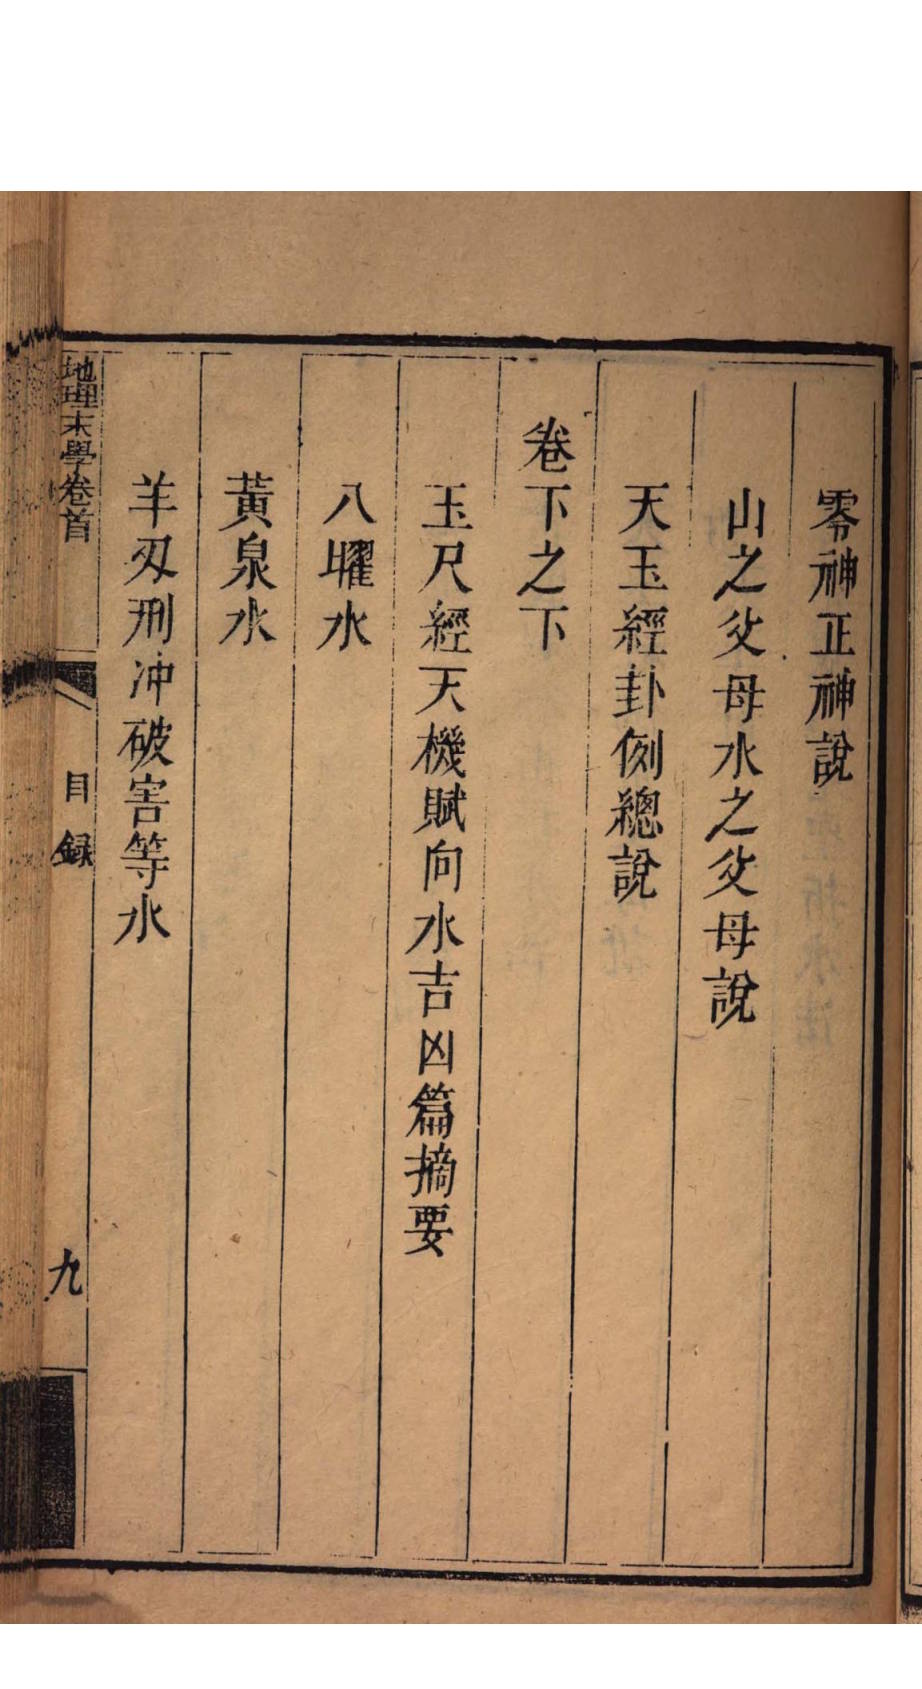 零神正神說
山之父母水之父母說
天玉經卦例總說
卷下之下
玉尺經天機賦向水吉凶篇摘要
八曜水
黃泉水
羊刃刑冲破害等水
地理末學卷首
目錄
九